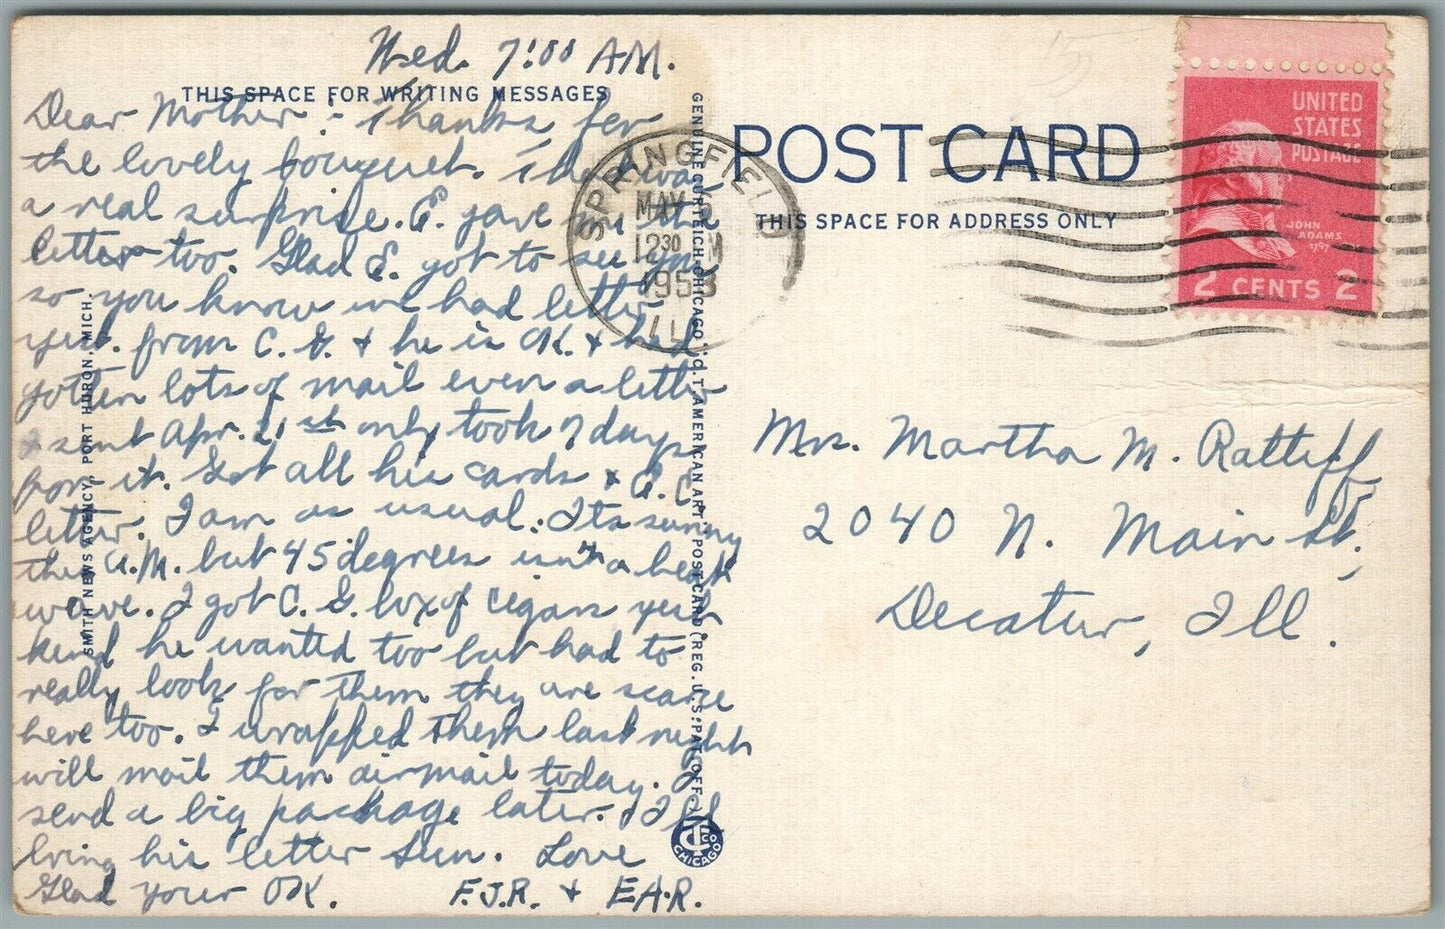 Wed. 7:00 A.M.
THIS SPACE FOR WRITING MESSAGES
Dear Mother :- Thanks for
the lovely bouquet. That was
a real surprise. E. gave me the
letter too. Glad E. got to see you
so you know we had letter
yest. from C. G. & he is OK. & had
gotten lots of mail even a letter
I sent Apr. 21st only took 7 days
for it. Got all his cards & C.C.
letter. I am as usual. Its sunny
this A.M. but 45 degrees isn't a heat
wave. I got C. G. box of cigars yest
kind he wanted too but had to
really look for them they are scarce
here too. I wrapped them last night
will mail them airmail today. I
send a big package later. I'll
bring his letter Sun. Love
Glad your OK. F.J.R. & E.A.R.
SMITH NEWS AGENCY, PORT HURON, MICH.
GENUINE CURTEICH-CHICAGO "C.T. AMERICAN ART" POST CARD (REG. U.S. PAT. OFF.)
CT CO
CHICAGO
SPRINGFIELD
MAY
12 30 M
1953
ILL
POST CARD
THIS SPACE FOR ADDRESS ONLY
UNITED
STATES
POSTAGE
JOHN
ADAMS
1797
2 CENTS 2
Mrs. Martha M. Ratliff
2040 N. Main St.,
Decatur, Ill.